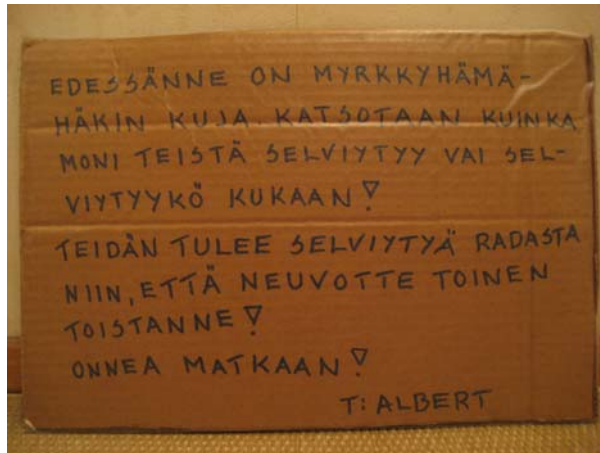 EDESSÄNNE ON MYRKKYHÄMÄ-
HÄKIN KUJA. KATSOTAAN KUINKA
MONI TEISTÄ SELVIYTYY VAI SEL-
VIYTYYKÖ KUKAAN!
TEIDÄN TULEE SELVIYTYÄ RADASTA
NIIN, ETTÄ NEUVOTTE TOINEN
TOISTANNE!
ONNEA MATKAAN!
T: ALBERT